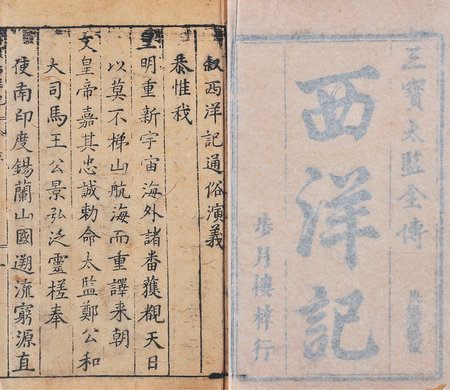 三寶太監全傳
西洋記
步月樓梓行
叙西洋記通俗演義
恭惟我
皇明重新宇宙海外諸番獲覩天日
以莫不梯山航海而重譯來朝
文皇帝嘉其忠誠勅命太監鄭公和
大司馬王公景弘泛靈槎奉
使南印度錫蘭山國遡流窮源直